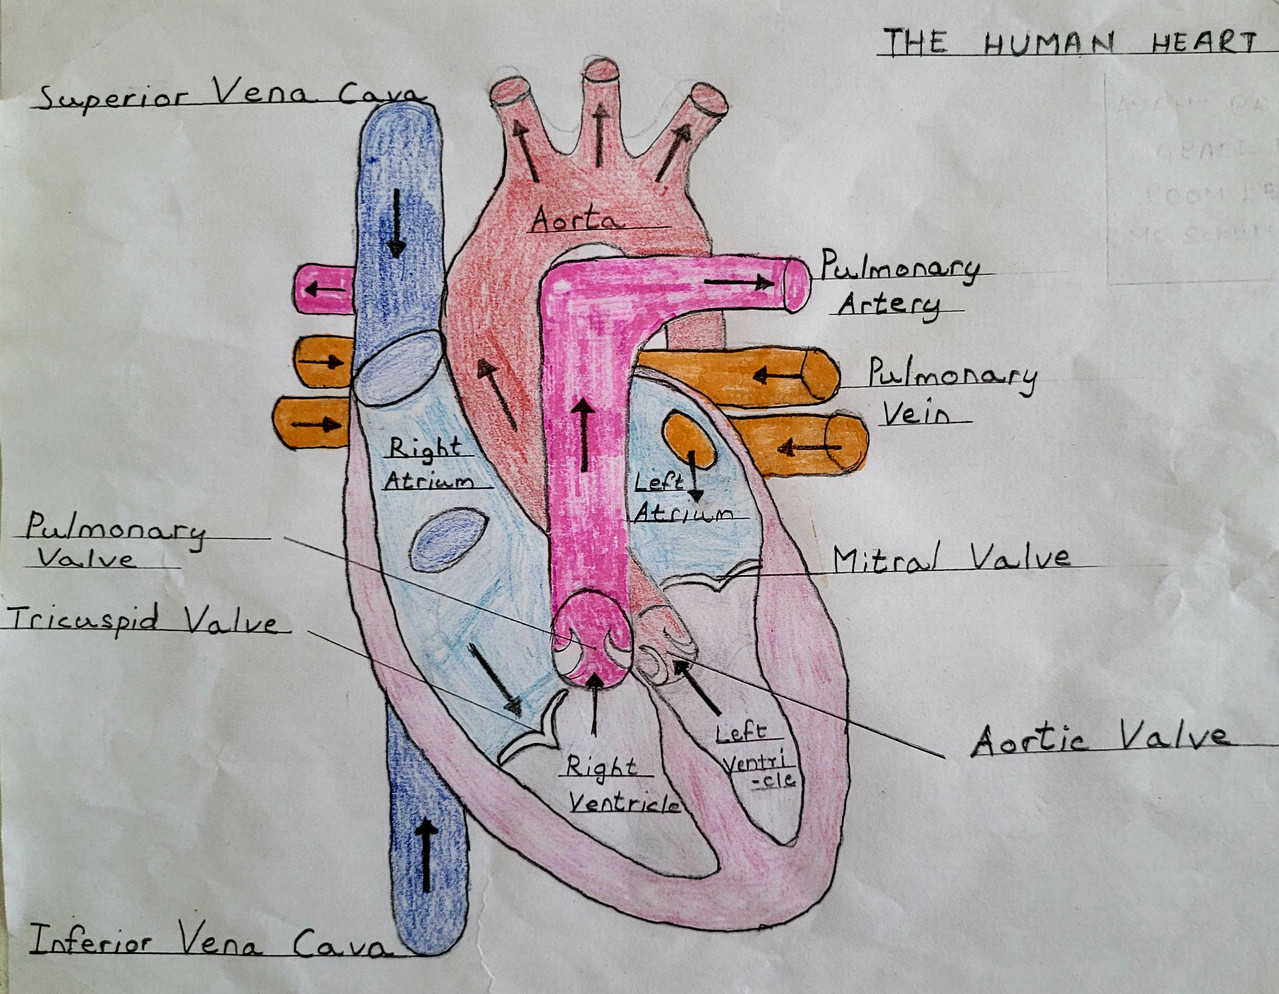 THE HUMAN HEART
Superior Vena Cava
Aorta
Pulmonary
Artery
Pulmonary
Vein
Right
Atrium
Left
Atrium
Pulmonary
Valve
Mitral Valve
Tricuspid Valve
Aortic Valve
Left
Ventri
-cle
Right
Ventricle
Inferior Vena Cava